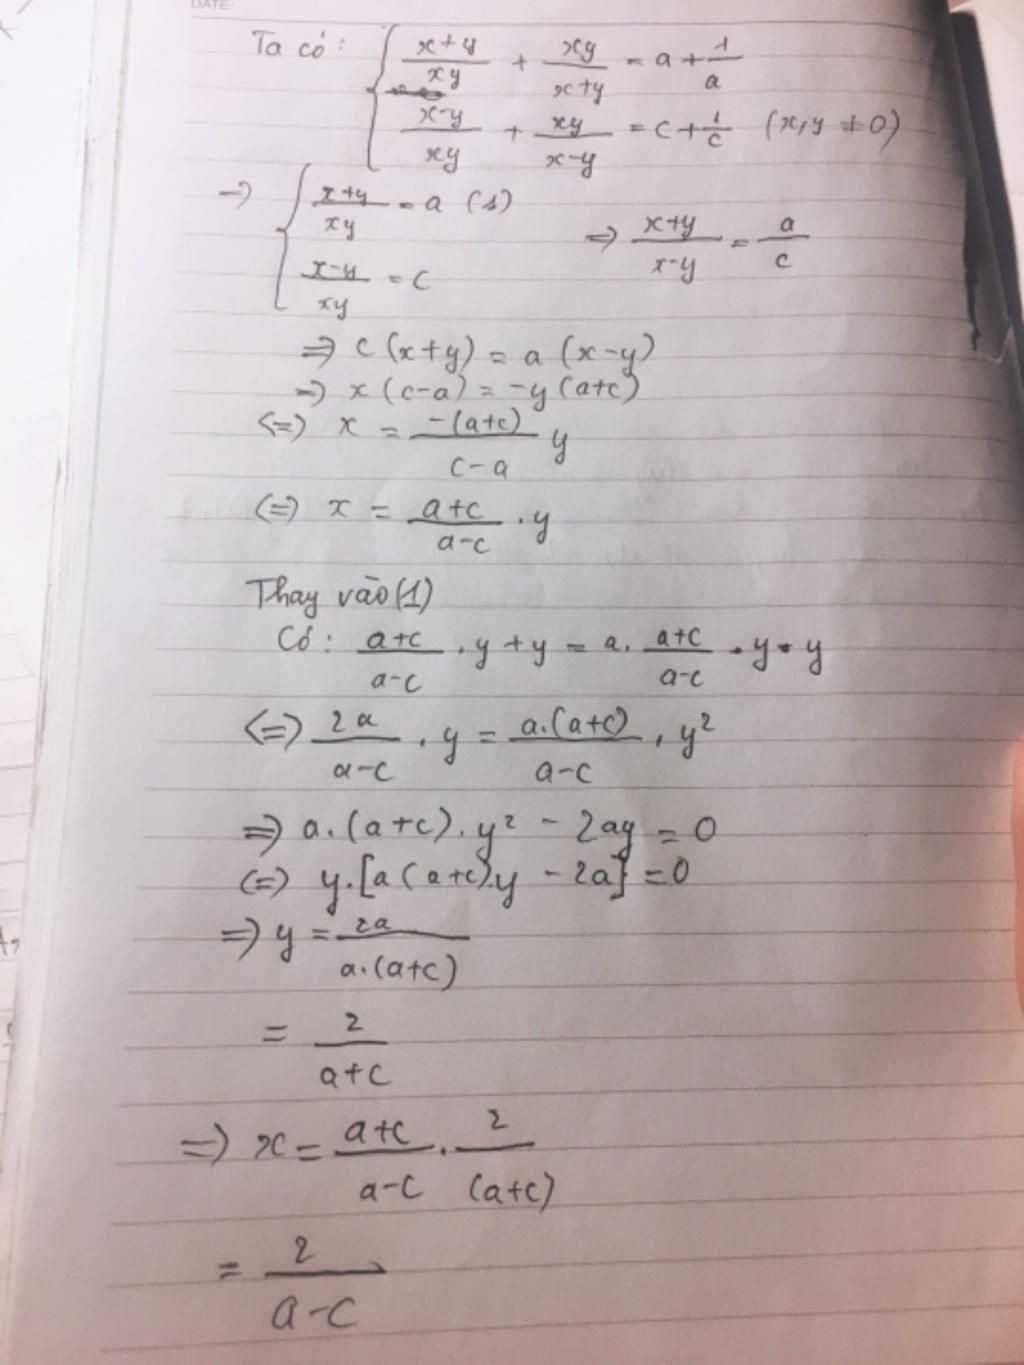 DATE:
Ta có: { (x+y)/(xy) + (xy)/(x+y) = a + 1/a
(x-y)/(xy) + (xy)/(x-y) = c + 1/c (x,y ≠ 0)
→ { (x+y)/(xy) = a (1)
(x-y)/(xy) = c
=> (x+y)/(x-y) = a/c
=> c(x+y) = a(x-y)
→ x(c-a) = -y(a+c)
<=> x = -(a+c)/(c-a) y
<=> x = (a+c)/(a-c) . y
Thay vào (1)
Có: (a+c)/(a-c) . y + y = a . (a+c)/(a-c) . y . y
<=> 2a/(a-c) . y = a.(a+c)/(a-c) . y²
=> a.(a+c).y² - 2ay = 0
<=> y.[a(a+c).y - 2a] = 0
=> y = 2a/(a.(a+c))
= 2/(a+c)
=> x = (a+c)/(a-c) . 2/(a+c)
= 2/(a-c)